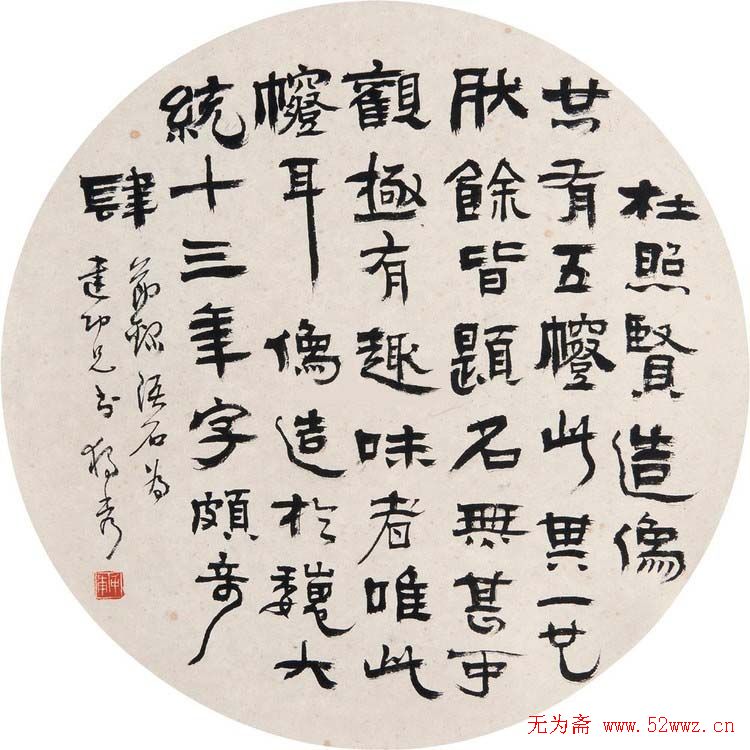 杜照賢造像
共有五㡧此其一也
肰餘皆題名無甚可
觀極有趣味者唯此
㡧耳 像造於魏大
統十三年字頗奇
肆
節錄語石為
建功兄書 獨秀
无为斋 www.52wwz.cn